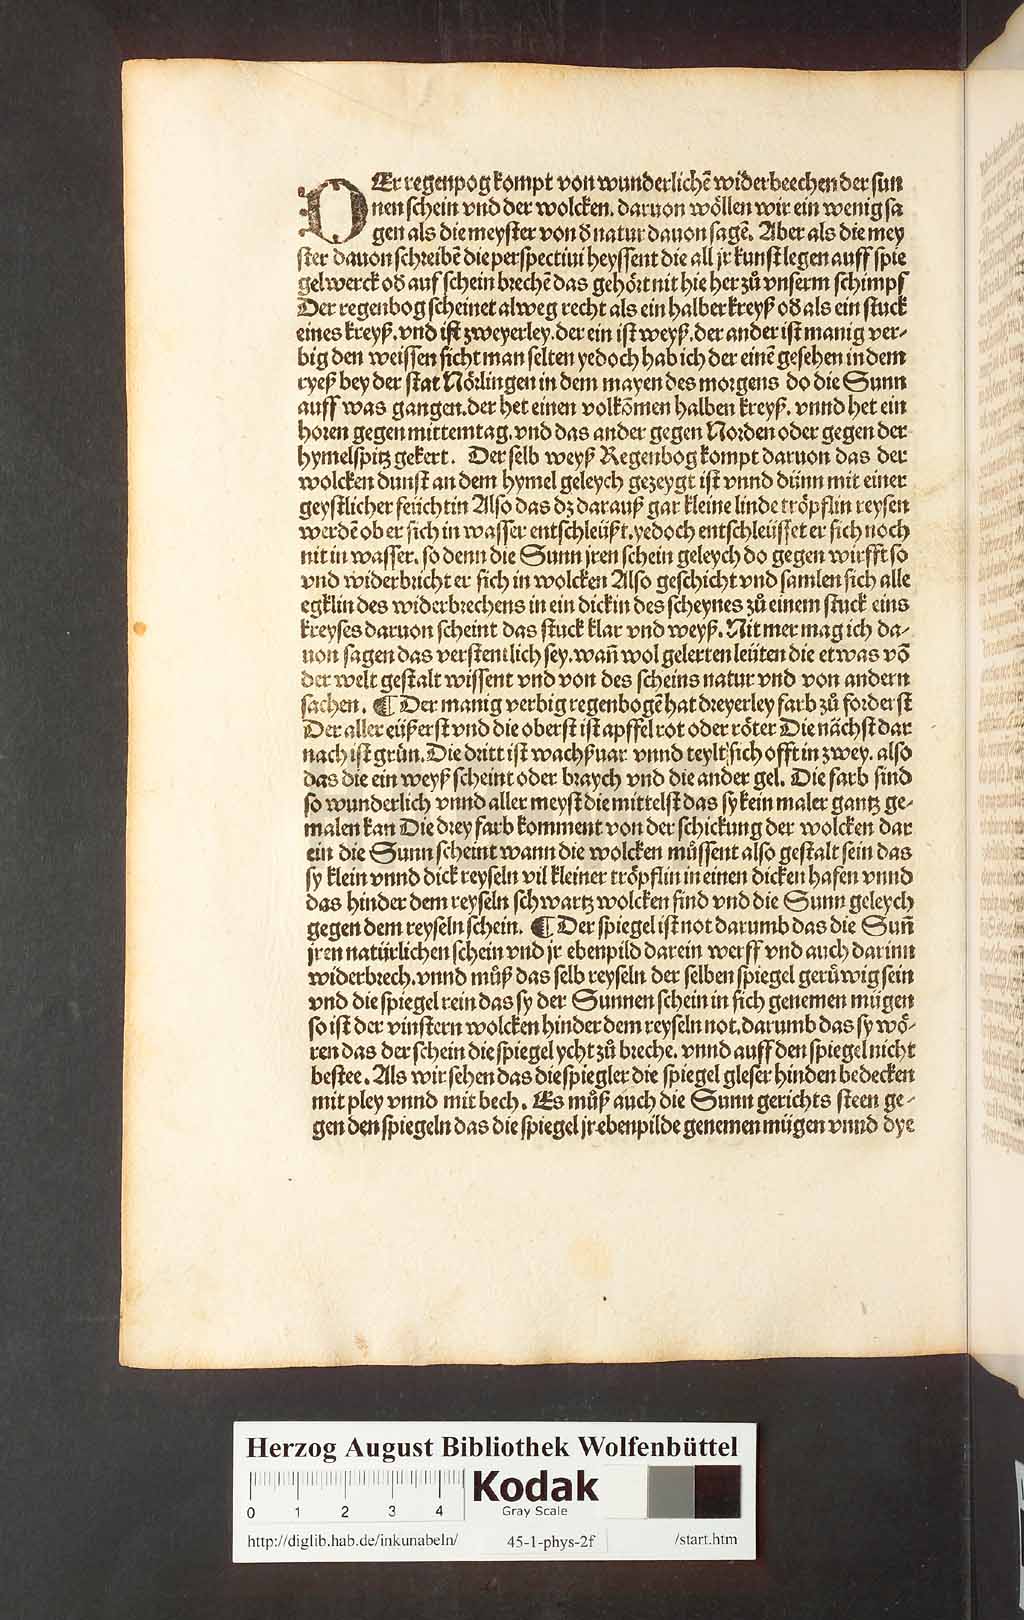 DEr regenpog kompt von wunderlichē widerbeechen der sun
nen schein vnd der wolcken. daruon wöllen wir ein wenig sa
gen als die meyster von d̕ natur dauon sagē. Aber als die mey
ster dauon schreibē die perspectiui heyssent die all jr kunst legen auff spie
gelwerck od̕ auf schein brechē das gehört nit hie her zů vnserm schimpf
Der regenbog scheinet alweg recht als ein halber kreyß od̕ als ein stuck
eines kreyß. vnd ist zweyerley. der ein ist weyß. der ander ist manig ver-
big den weissen sicht man selten yedoch hab ich der einē gesehen in dem
ryeß bey der stat Nörlingen in dem mayen des morgens do die Sunn
auff was gangen. der het einen volkōmen halben kreyß. vnnd het ein
horen gegen mittemtag. vnd das ander gegen Norden oder gegen der
hymelspitz gekert. Der selb weyß Regenbog kompt daruon das der
wolcken dunst an dem hymel geleych gezeygt ist vnnd dünn mit einer
geystlicher feüchtin Also das dz darauß gar kleine linde tröpflin reysen
werdē ob er sich in wasser entschleüßt. yedoch entschleüsset er sich noch
nit in wasser. so denn die Sunn jren schein geleych do gegen wirfft so
vnd widerbricht er sich in wolcken Also geschicht vnd samlen sich alle
egklin des widerbrechens in ein dickin des scheynes zů einem stuck eins
kreyses daruon scheint das stuck klar vnd weyß. Nit mer mag ich da-
uon sagen das verstentlich sey. wañ wol gelerten leüten die etwas vō
der welt gestalt wissent vnd von des scheins natur vnd von andern
sachen. ¶ Der manig verbig regenbogē hat dreyerley farb zů forderst
Der aller eüßerst vnd die oberst ist apffel rot oder röter Die nächst dar
nach ist grün. Die dritt ist wachßuar vnnd teylt sich offt in zwey. also
das die ein weyß scheint oder braych vnd die ander gel. Die farb sind
so wunderlich vnnd aller meyst die mittelst das sy kein maler gantz ge-
malen kan Die drey farb komment von der schickung der wolcken dar
ein die Sunn scheint wann die wolcken můssent also gestalt sein das
sy klein vnnd dick reyseln vil kleiner tröpflin in einen dicken hafen vnnd
das hinder dem reyseln schwartz wolcken sind vnd die Sunn geleych
gegen dem reyseln schein. ¶ Der spiegel ist not darumb das die Suñ
jren natürlichen schein vnd jr ebenpild darein werff vnd auch darinn
widerbrech. vnnd můß das selb reyseln der selben spiegel gerůwig sein
vnd die spiegel rein das sy der Sunnen schein in sich genemen mügen
so ist der vinstern wolcken hinder dem reyseln not. darumb das sy wö-
ren das der schein die spiegel ycht zů breche. vnnd auff den spiegel nicht
bestee. Als wir sehen das die spiegler die spiegel gleser hinden bedecken
mit pley vnnd mit bech. Es můß auch die Sunn gerichts steen ge-
gen den spiegeln das die spiegel jr ebenpilde genemen mügen vnnd dye
Herzog August Bibliothek Wolfenbüttel
0 1 2 3 4
Kodak
Gray Scale
http://diglib.hab.de/inkunabeln/ 45-1-phys-2f /start.htm